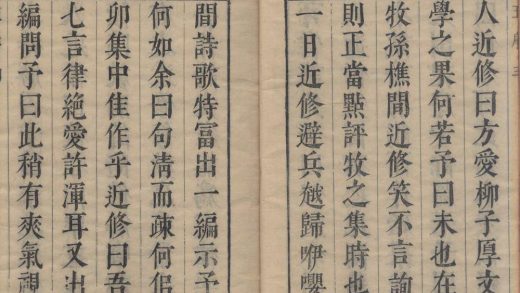 人近修曰方愛柳子厚文
學之果何若予曰未也在
牧孫樵間近修笑不言詢
則正當點評牧之集時也
一日近修避兵越歸咿嚶
間詩歌特富出一編示予
何如余曰句清而疎何佀
卯集中佳作乎近修曰吾
七言律絕愛許渾耳又出
編問予曰此稍有爽氣